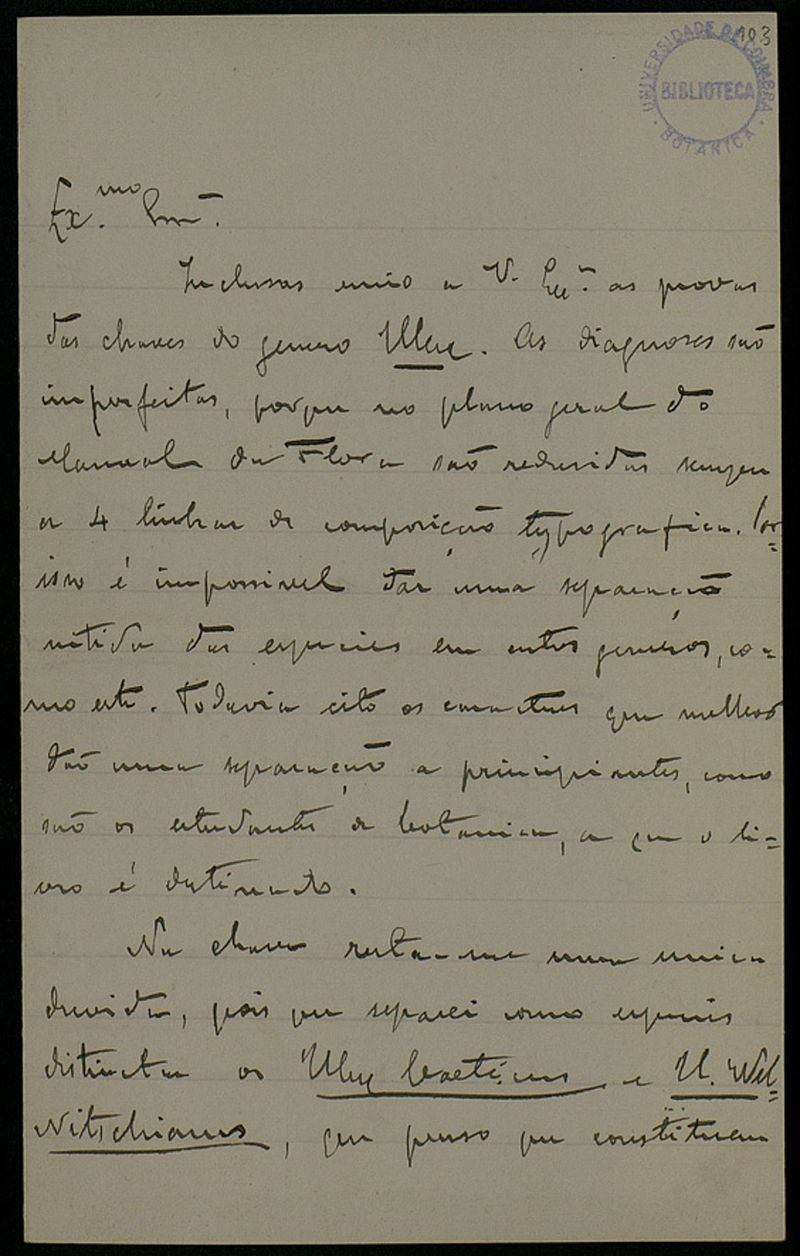 103
UNIVERSIDADE DE COIMBRA
BIBLIOTECA
BOTANICA
Ex.mo Snr.
Inclusas envio a V. Exª. as provas
das chaves do genero Ulex. As diagnoses são
imperfeitas, porque no plano geral do
Manual da Flora são reduzidas sempre
a 4 linhas de composição typografica. Por=
isso é impossivel dar uma separação
nitida das especies em certos generos, co=
mo este. Todavia cito os caracteres que melhor
dão uma separação a principiantes, como
são os estudantes de botanica, a que o li=
vro é destinado.
Na chave resta-me uma unica
duvida, pois que separei como especies
distinctas os Ulex baeticus e U. Wel=
witschianus, que penso que constituem